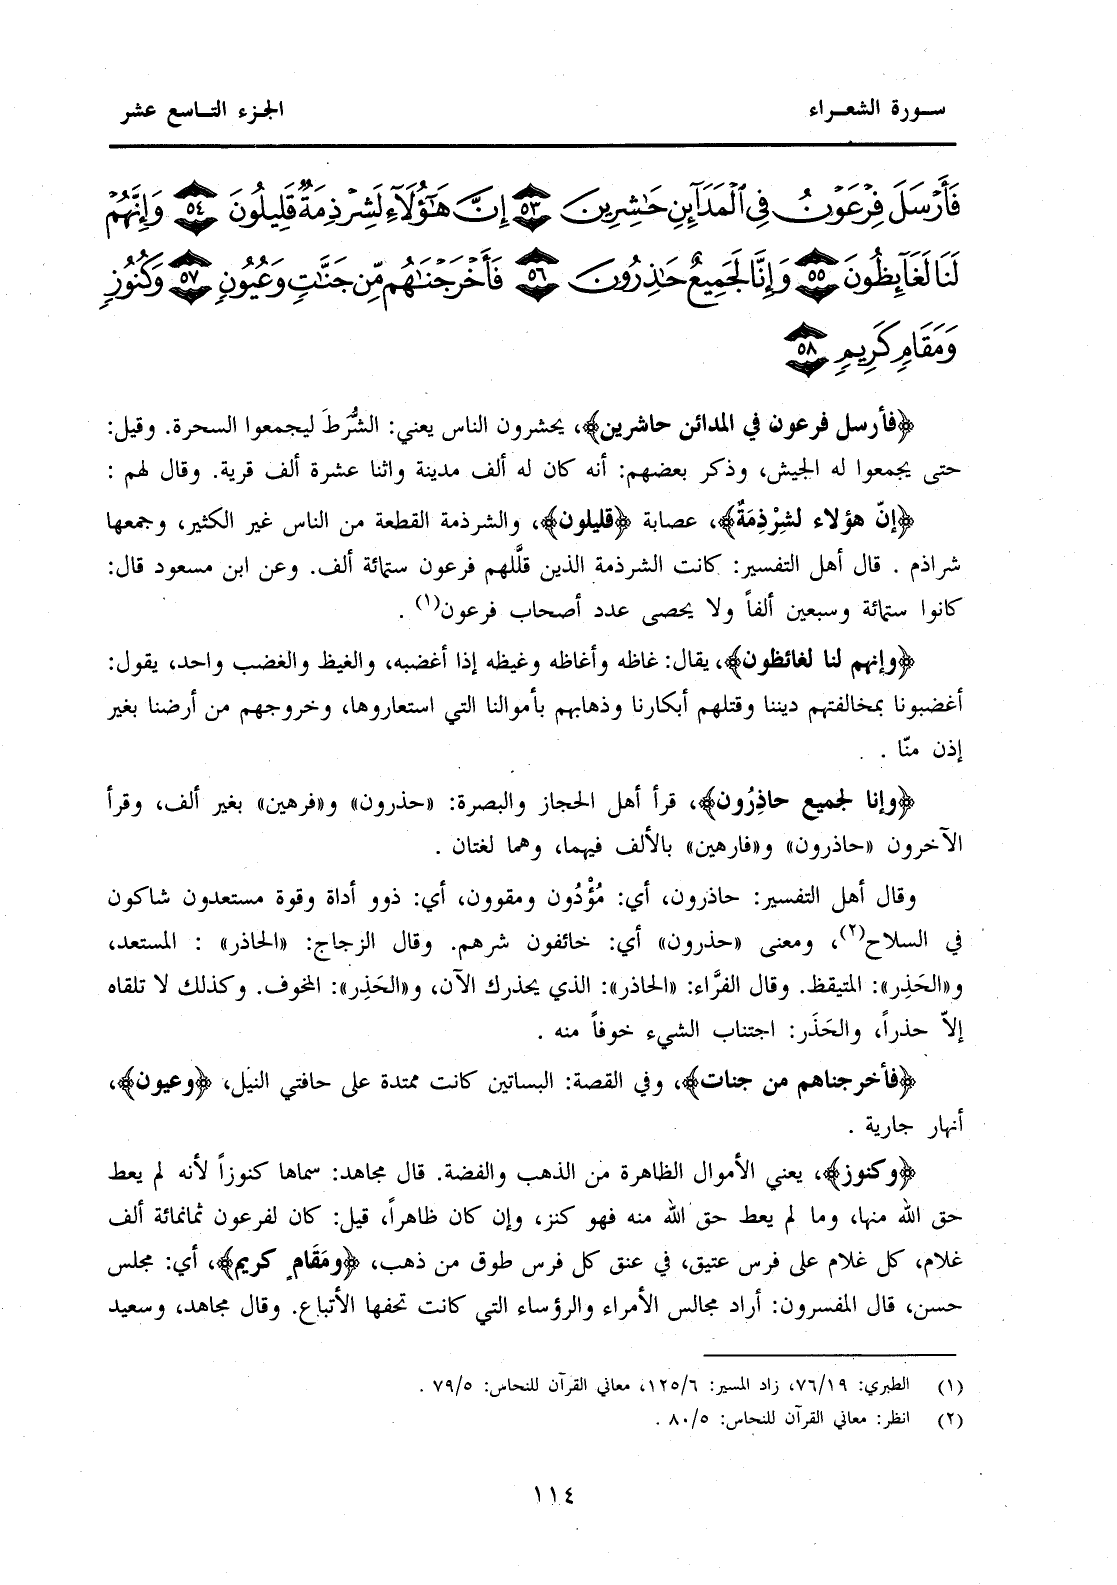 سورة الشعراء
الجزء التاسع عشر
فَأَرْسَلَ فِرْعَوْنُ فِي الْمَدَآئِنِ حَاشِرِينَ ٥٣ إِنَّ هَٰٓؤُلَآءِ لَشِرْذِمَةٌ قَلِيلُونَ ٥٤ وَإِنَّهُمْ
لَنَا لَغَآئِظُونَ ٥٥ وَإِنَّا لَجَمِيعٌ حَاذِرُونَ ٥٦ فَأَخْرَجْنَاهُم مِّن جَنَّاتٍ وَعُيُونٍ ٥٧ وَكُنُوزٍ
وَمَقَامٍ كَرِيمٍ ٥٨
﴿فأرسل فرعون في المدائن حاشرين﴾، يحشرون الناس يعني: الشُّرَطَ ليجمعوا السحرة. وقيل:
حتى يجمعوا له الجيش، وذكر بعضهم: أنه كان له ألف مدينة واثنا عشرة ألف قرية. وقال لهم :
﴿إنّ هؤلاء لشِرْذِمَةٌ﴾، عصابة ﴿قليلون﴾، والشرذمة القطعة من الناس غير الكثير، وجمعها
شراذم . قال أهل التفسير: كانت الشرذمة الذين قلَّلهم فرعون ستمائة ألف. وعن ابن مسعود قال:
كانوا ستمائة وسبعين ألفاً ولا يحصى عدد أصحاب فرعون(١) .
﴿وإنهم لنا لغائظون﴾، يقال: غاظه وأغاظه وغيظه إذا أغضبه، والغيظ والغضب واحد، يقول:
أغضبونا بمخالفتهم ديننا وقتلهم أبكارنا وذهابهم بأموالنا التي استعاروها، وخروجهم من أرضنا بغير
إذن منّا .
﴿وإنا لجميع حاذِرُون﴾، قرأ أهل الحجاز والبصرة: «حذرون» و«فرهين» بغير ألف، وقرأ
الآخرون «حاذرون» و«فارهين» بالألف فيهما، وهما لغتان .
وقال أهل التفسير: حاذرون، أي: مُؤْدُون ومقوون، أي: ذوو أداة وقوة مستعدون شاكون
في السلاح(٢)، ومعنى «حذرون» أي: خائفون شرهم. وقال الزجاج: «الحاذر» : المستعد،
و«الحَذِر»: المتيقظ. وقال الفرَّاء: «الحاذر»: الذي يحذرك الآن، و«الحَذِر»: المخوف. وكذلك لا تلقاه
إلاّ حذراً، والحَذَر: اجتناب الشيء خوفاً منه .
﴿فأخرجناهم من جنات﴾، وفي القصة: البساتين كانت ممتدة على حافتي النيل، ﴿وعيون﴾،
أنهار جارية .
﴿وكنوز﴾، يعني الأموال الظاهرة من الذهب والفضة. قال مجاهد: سماها كنوزاً لأنه لم يعط
حق الله منها، وما لم يعط حق الله منه فهو كنز، وإن كان ظاهراً، قيل: كان لفرعون ثمانمائة ألف
غلام، كل غلام على فرس عتيق، في عنق كل فرس طوق من ذهب، ﴿ومَقَامٍ كريم﴾، أي: مجلس
حسن، قال المفسرون: أراد مجالس الأمراء والرؤساء التي كانت تحفها الأتباع. وقال مجاهد، وسعيد
(١) الطبري: ٧٦/١٩، زاد المسير: ١٢٥/٦، معاني القرآن للنحاس: ٧٩/٥ .
(٢) انظر: معاني القرآن للنحاس: ٨٠/٥ .
١١٤